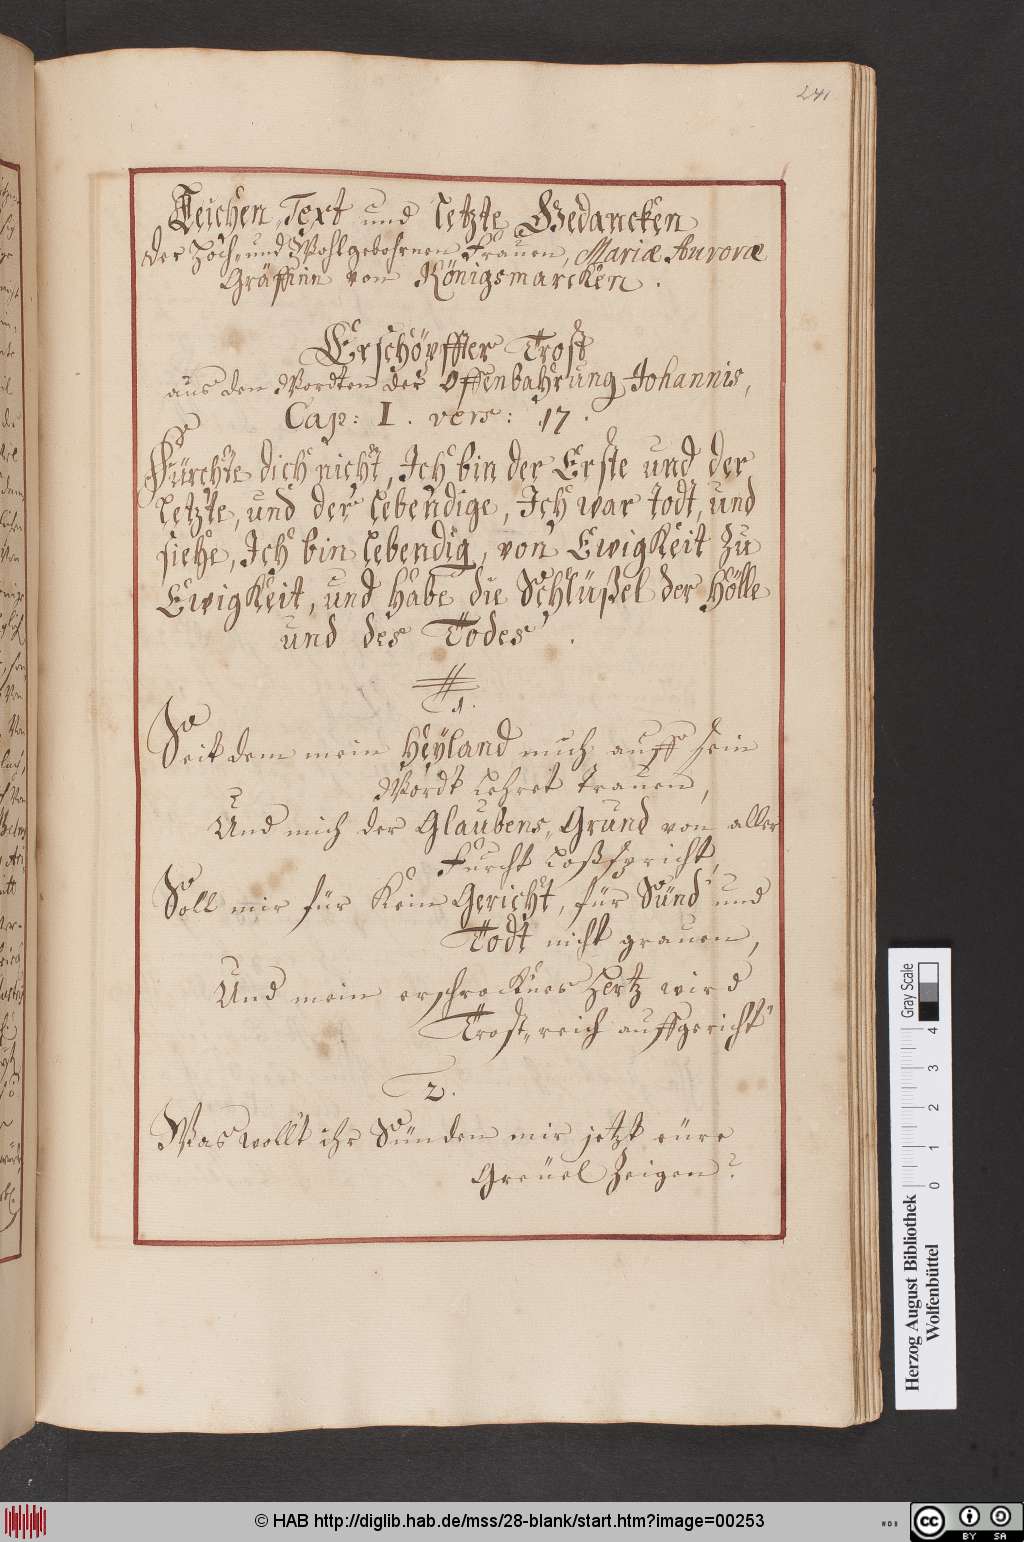 241
Leichen-Text und letzte Gedancken
der Hoch- und Wohlgebohrnen Frauen, Mariæ Auroræ
Gräffinn von Königsmarcken.
Erschöpffter Trost
aus den Wordten der Offenbahrung Johannis,
Cap: I. vers: 17.
Fürchte dich nicht, Ich bin der Erste und der
letzte, und der lebendige, Ich war todt, und
siehe, Ich bin lebendig, von Ewigkeit zu
Ewigkeit, und habe die Schlüßel der Hölle
und des Todes.
1.
Seit dem mein Heyland mich auff sein
Wordt lehret trauen,
Und mich der Glaubens-Grund von aller
Furcht loßspricht,
Soll mir für kein Gericht, für Sünd und
Todt nicht grauen,
Und mein erschrocknes Hertz wird
Trost-reich auffgericht
2.
Was wollt ihr Sünden mir jetzt eüre
Greüel zeigen?
Gray Scale
4
3
2
1
0
Herzog August Bibliothek
Wolfenbüttel
© HAB http://diglib.hab.de/mss/28-blank/start.htm?image=00253
WDB
cc BY SA